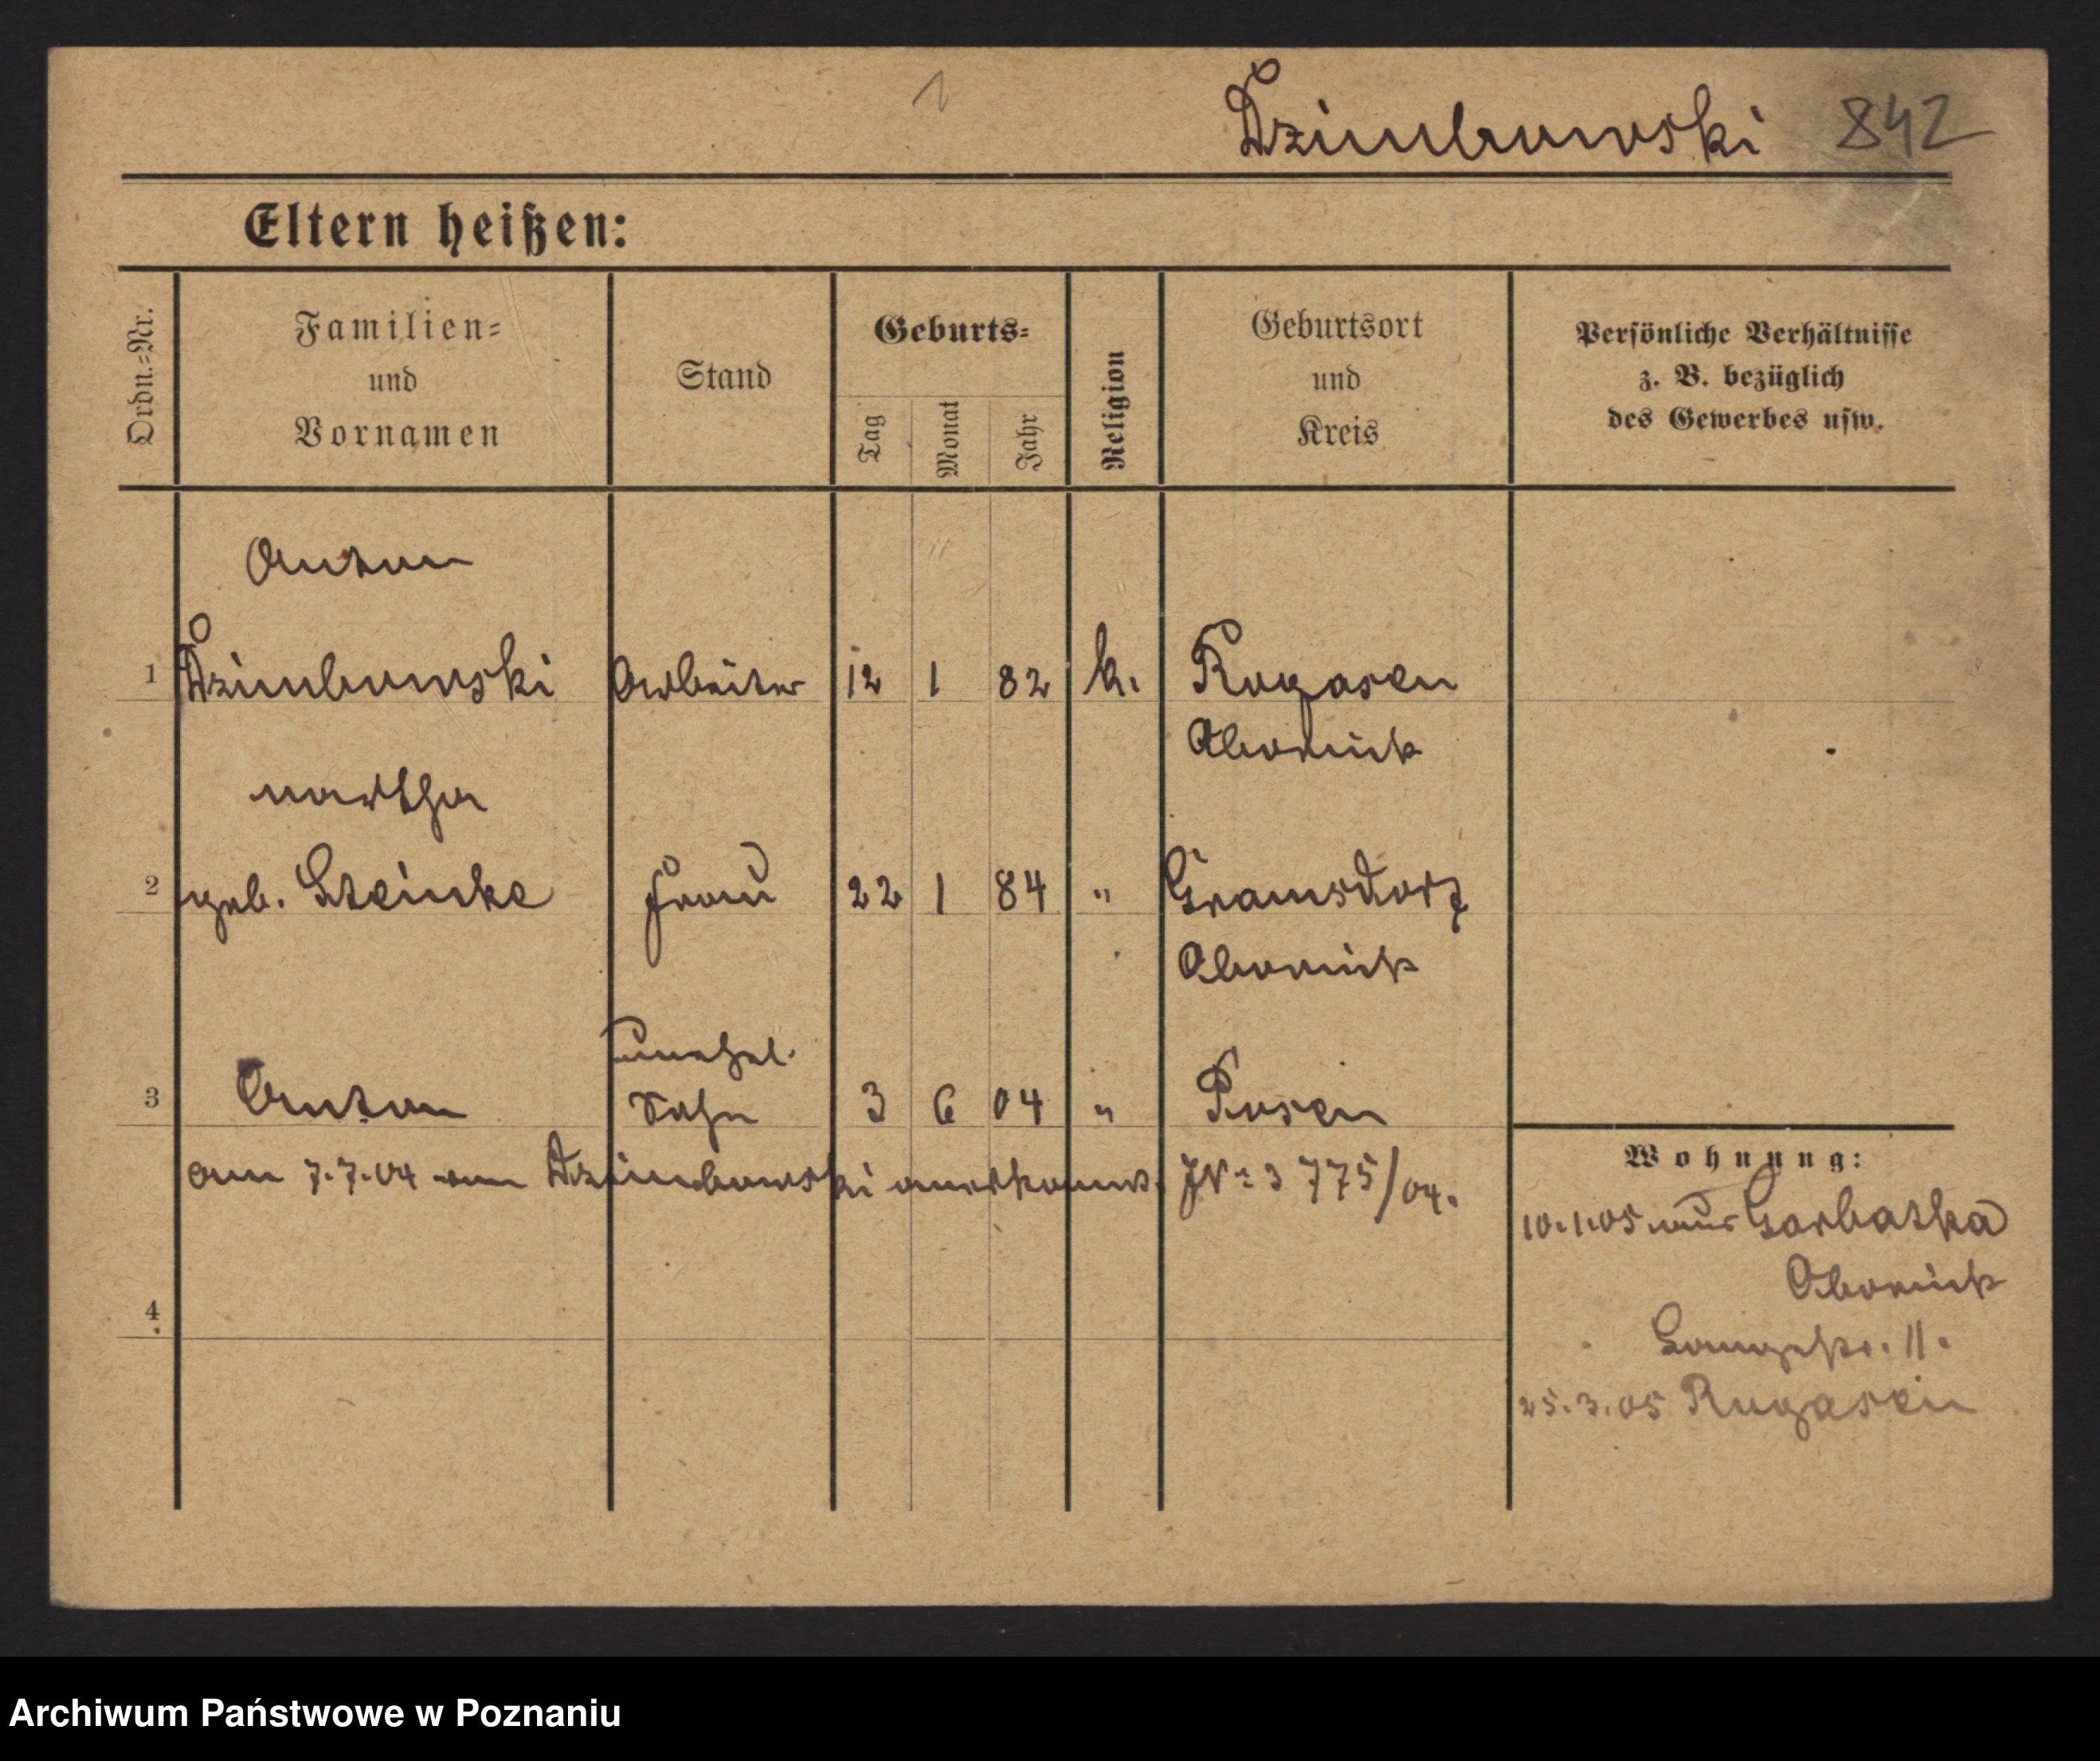 1
Dzimbowski 842
Eltern heißen:
Ordn.=Nr.
Familien=
und
Vornamen
Stand
Geburts=
Tag
Monat
Jahr
Religion
Geburtsort
und
Kreis
Persönliche Verhältnisse
z. B. bezüglich
des Gewerbes usw.
Anton
1 Dzimbowski Arbeiter 12 1 82 k. Rogasen
Obornick
Martha
2 geb. Steinke Frau 22 1 84 " Gramsdorf
Obornick
unehel.
3 Anton Sohn 3 6 04 " Posen
am 7.7.04 von Dzimbowski anerkannt. JN: 3775/04.
Wohnung:
10.1.05 aus Garbatka
Obornick
4
Langestr. 11.
25.3.05 Rogasen
Archiwum Państwowe w Poznaniu